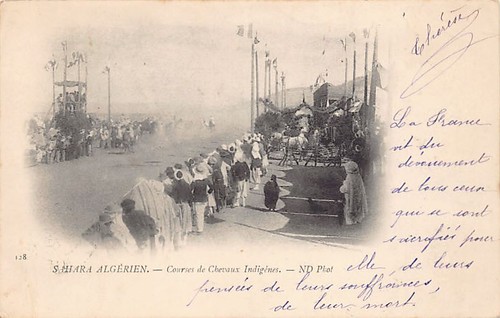 Thérèse
La France
vit du
dévouement
de tous ceux
qui se sont
sacrifiés pour
elle, de leurs
pensées de leurs souffrances,
de leur mort.
128
SAHARA ALGÉRIEN. — Courses de Chevaux Indigènes. — ND Phot